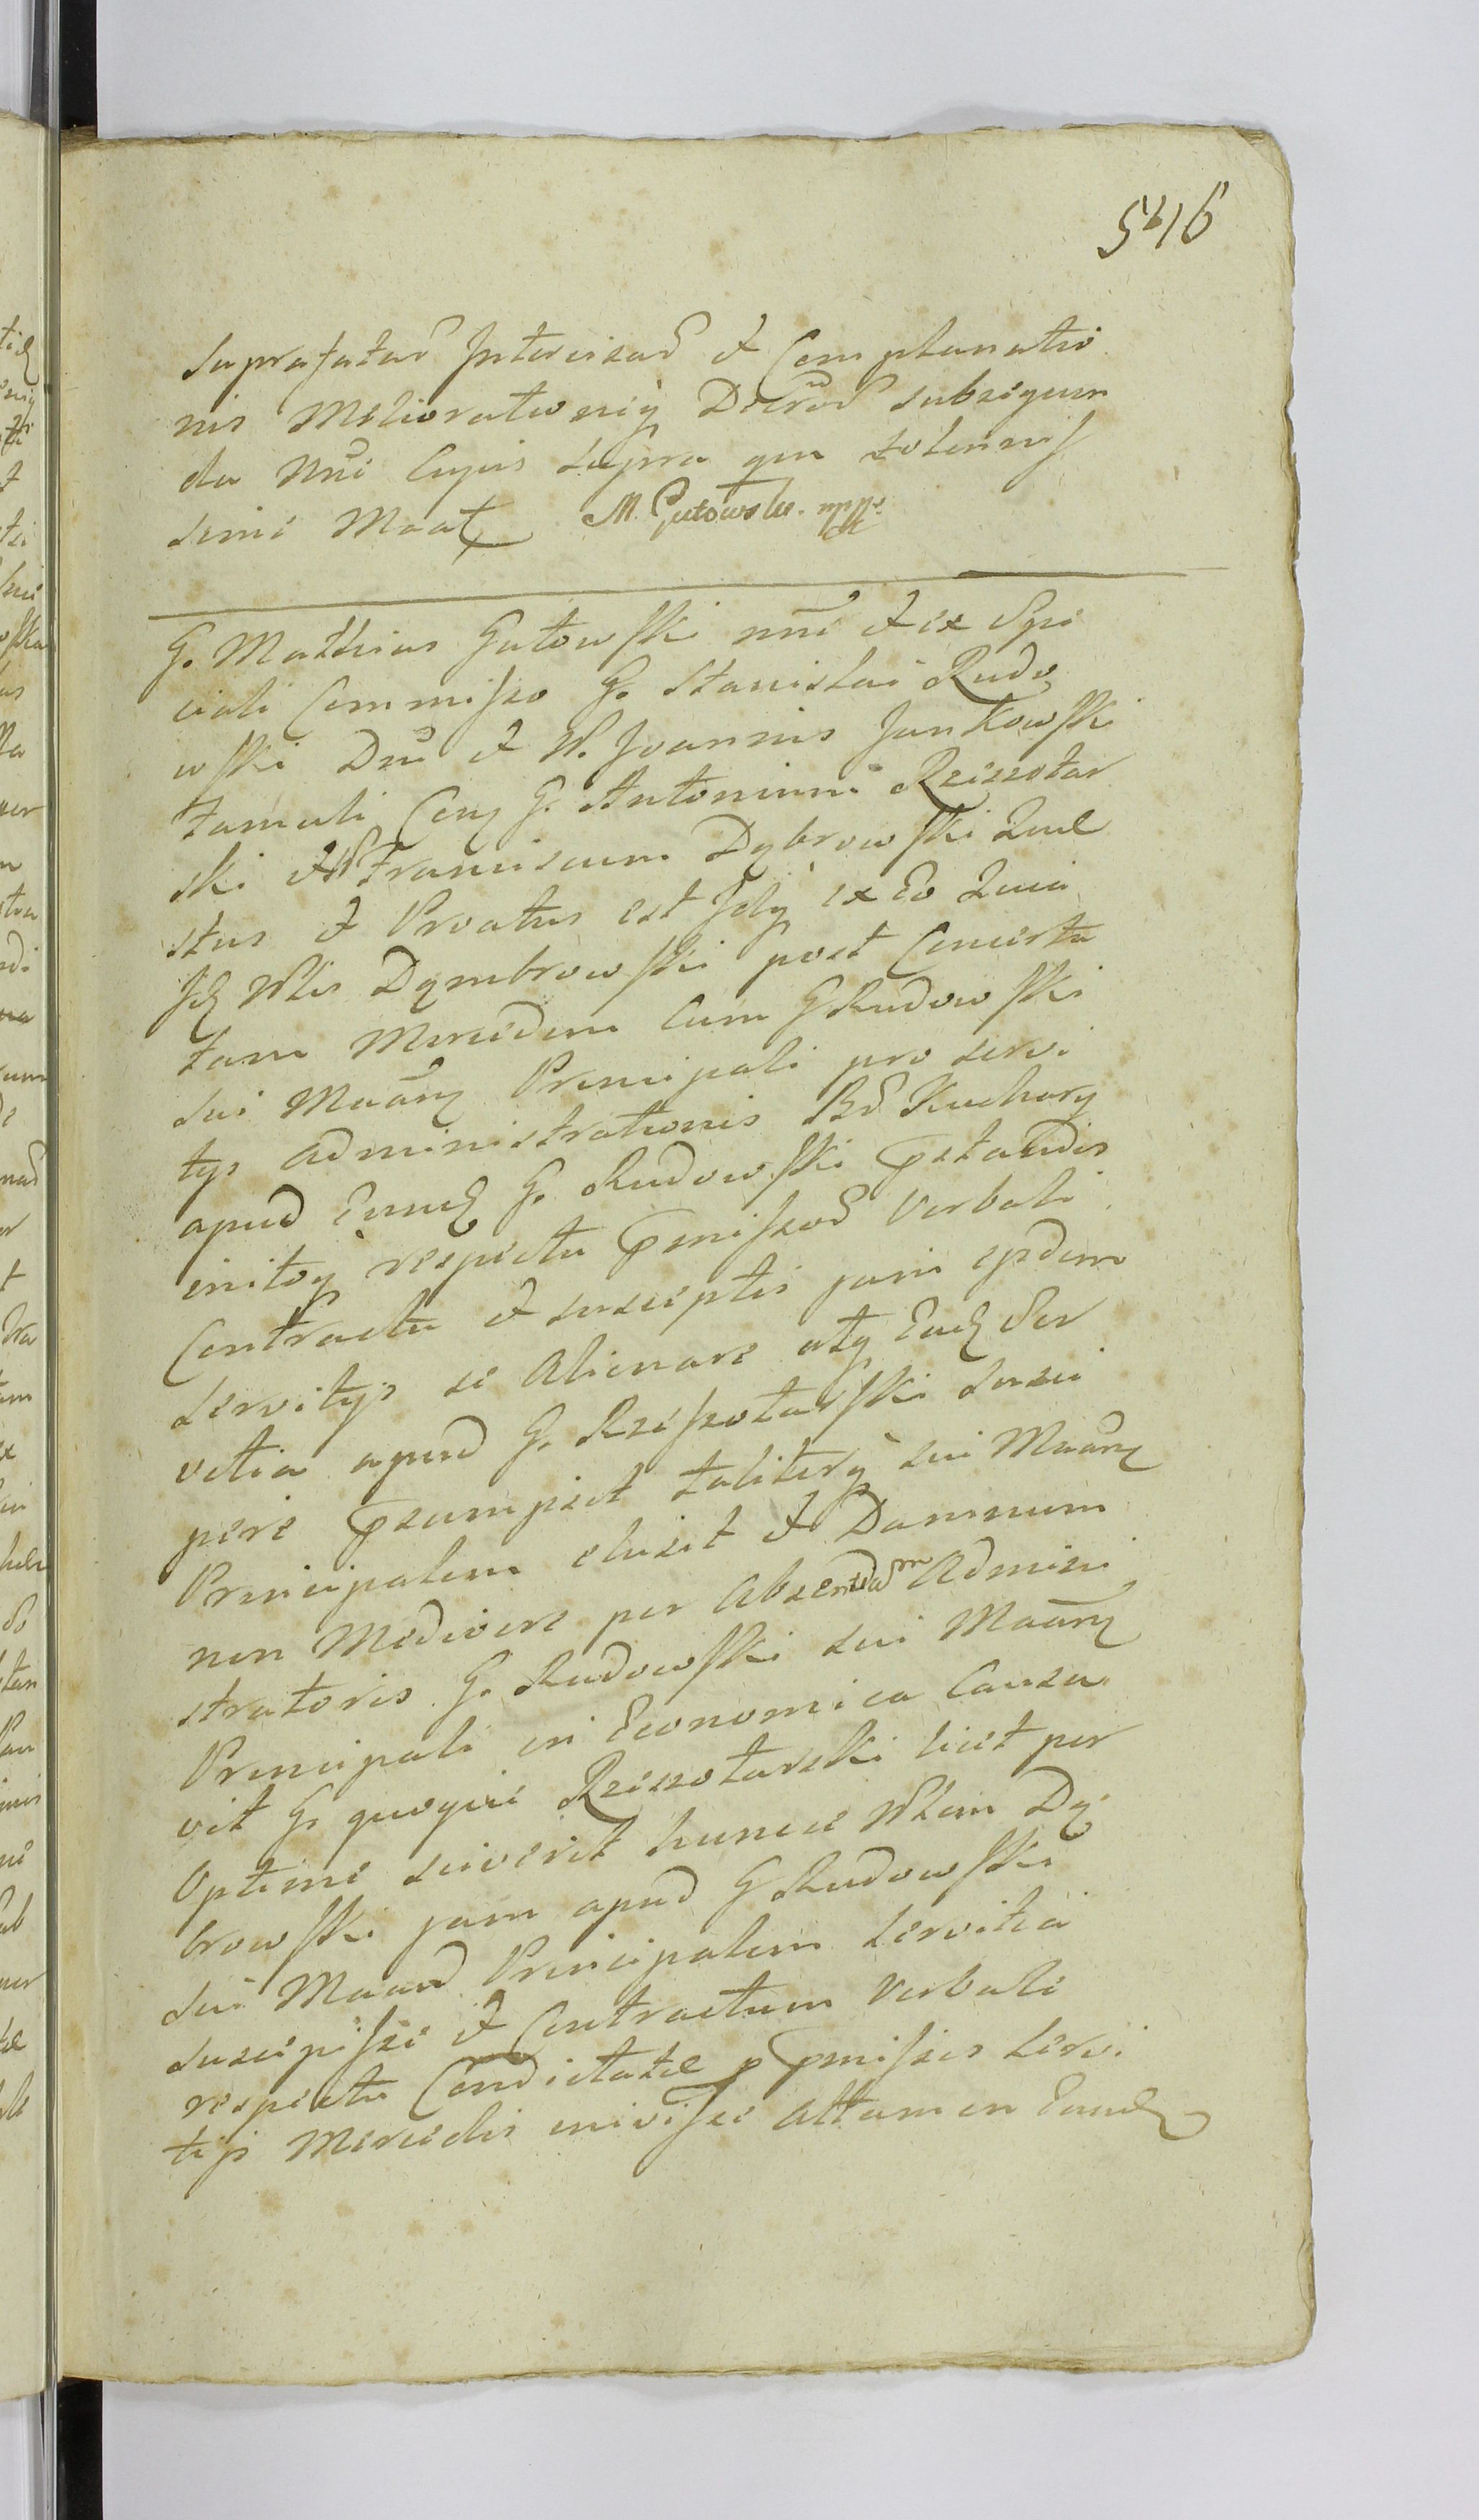 546
suprafatar Intercisar et Complanatio
nis Meliorationisq Decror subsequen
da Nni Cujus supra qm solennis
sime Maat M. Gutowski mpp
G. Mathias Gutowski nni et ex Spe
ciali Commisso G. Stanislai Rudo
wski Dni et N. Joannis Jankowski
famuli Cong G. Antonium Rzeszotar
ski et N Franciscum Dąbrowski Que
stus et Proatus est Idq ex eo Quia
Id Nlis Dąmbrowski post Concerta
tam Mercedem Cum G Rudowski
sui Maang Principali pro servi
tys administrationis Br Kuchary
apud Eund G. Rudowski pstandis
initoq respectu pmissor Verbali
Contractu et susceptis jam ejsdem
servitys se alienare atq Ead Ser
vitia apud G. Rzeszotarski susci
pere psumpsit taliterq sui Maang
Principalem elusit et Damnum
non Mediocre per absentiam Admini
stratoris G. Rudowski sui Maang
Principali in Economica Causa
vit G. quoque Rzeszotarski licet per
Optime sciverit huncce Nlem Dą
browski jam apud G Rudowski
sui Maand Principalem servitia
suscepisse et Contractum Verbale
respectu Condictatae p pmissis servi
tijs Mercedis inivisse attamen Eund